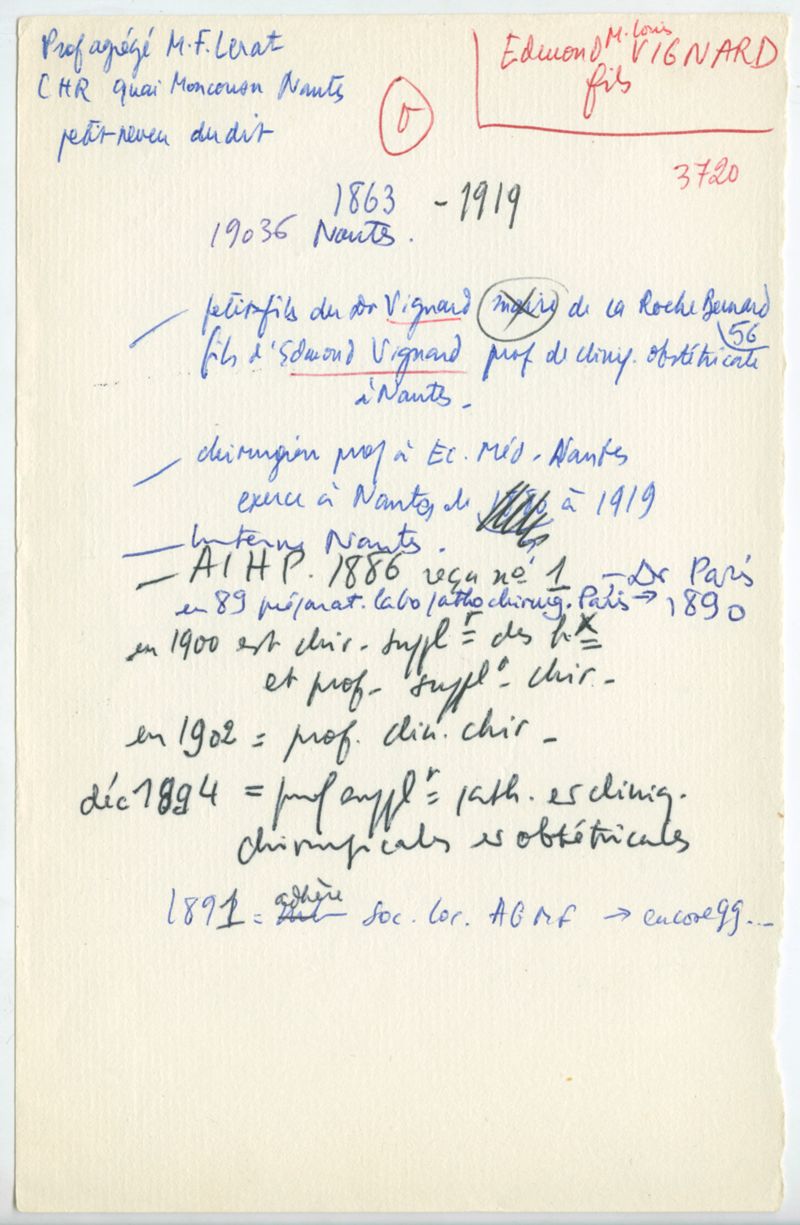 Prof agrégé M. F. Lerat
CHR quai Moncousu Nantes
petit-neveu du dit
M. Louis
Edmond VIGNARD
fils
3720
1863 - 1919
19036 Nantes.
petit-fils du Dr Vignard maire de la Roche Bernard
56
fils d'Edmond Vignard prof de cliniq. obstétricale
à Nantes -
chirurgien prof à Ec. Méd. Nantes
exerce à Nantes de à 1919
Interne Nantes.
AIHP. 1886 reçu n° 1 - Dr Paris
en 89 préparat. labo patho chirurg. Paris → 1890
en 1900 est chir. supplr = des hx
et prof. supplr - chir. -
en 1902 = prof. clin. chir -
déc 1894 = prof supplr = path. et cliniq.
chirurgicales et obstétricales
1891 = adhère Soc. loc. AGMF → encore 99...